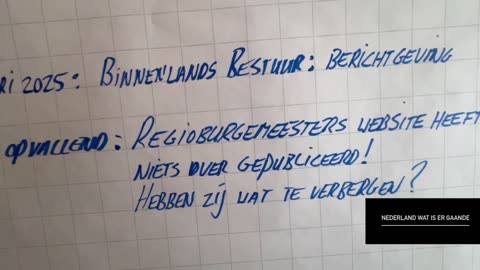 RI 2025: BINNENLANDS BESTUUR: BERICHTGEVING
OPVALLEND: REGIOBURGEMEESTERS WEBSITE HEEFT
NIETS OVER GEPUBLICEERD!
HEBBEN ZIJ WAT TE VERBERGEN?
NEDERLAND WAT IS ER GAANDE